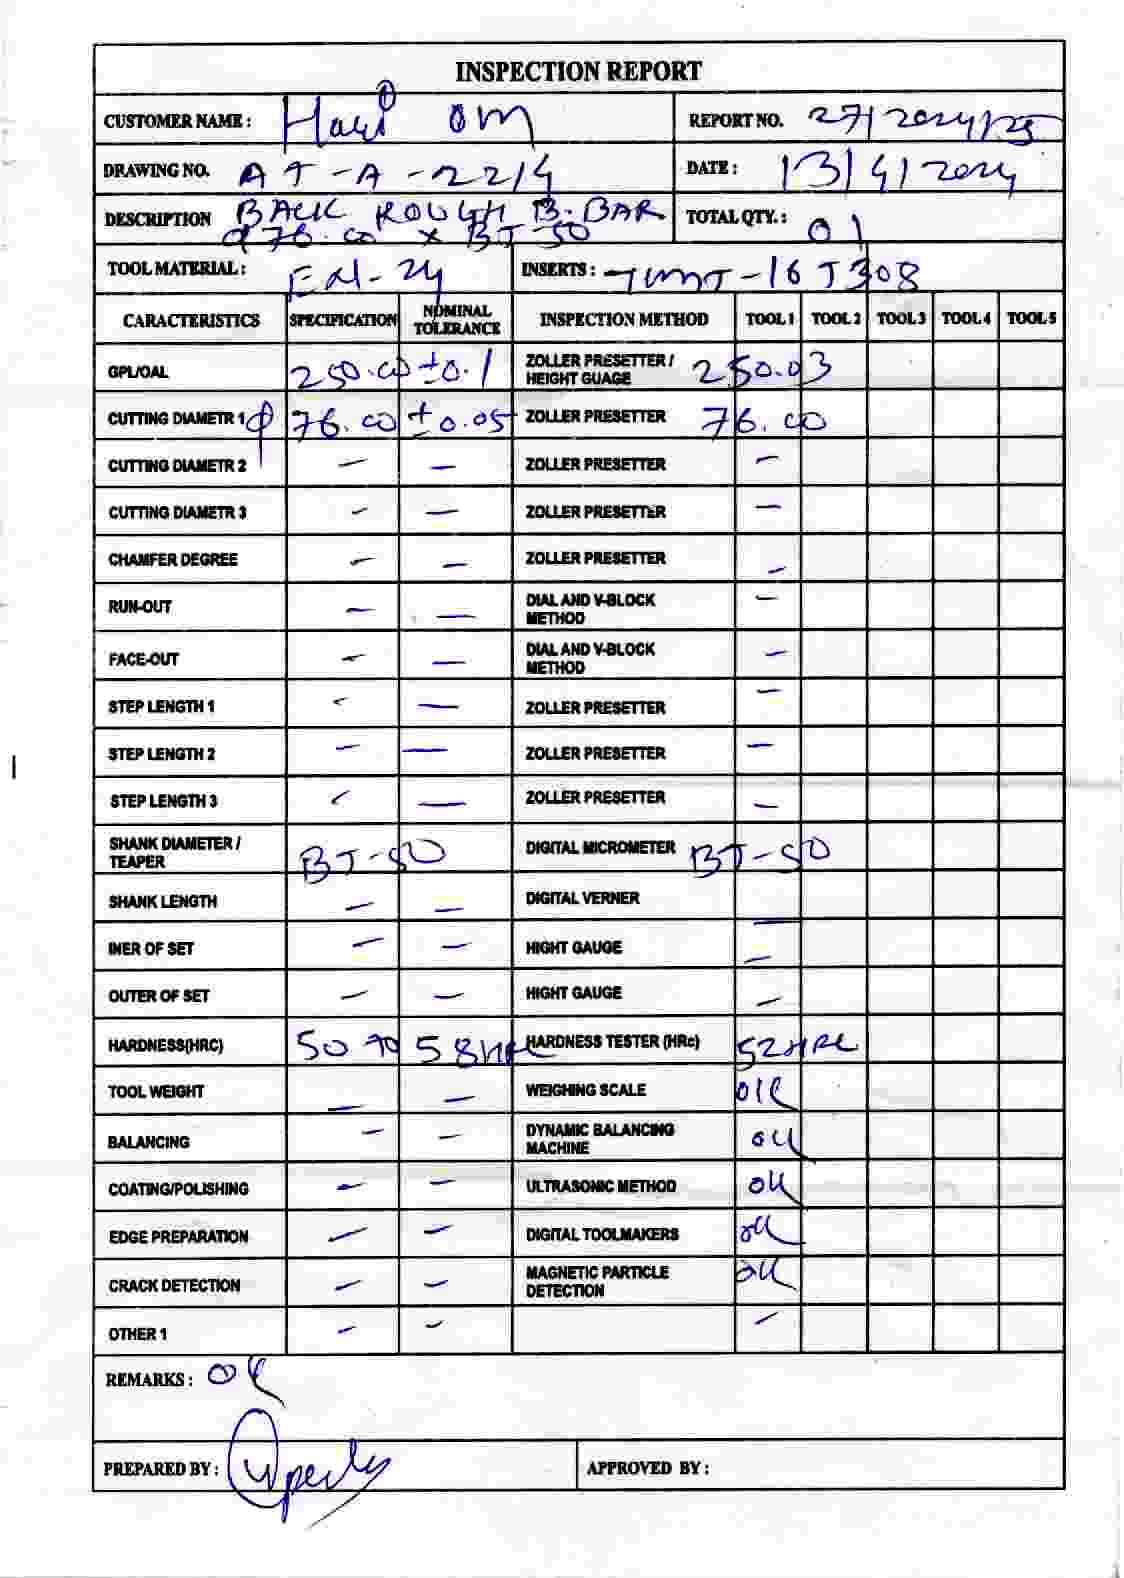 INSPECTION REPORT
CUSTOMER NAME : Hari OM REPORT NO. 27/2024/25
DRAWING NO. AT-A-2214 DATE : 13/4/2024
DESCRIPTION BACK ROUGH B.BAR TOTAL QTY. : 01
φ 76.00 x BT-50
TOOL MATERIAL : En-24 INSERTS : 16T308
CARACTERISTICS SPECIFICATION NOMINAL TOLERANCE INSPECTION METHOD TOOL 1 TOOL 2 TOOL 3 TOOL 4 TOOL 5
GPL/OAL 250.00 ±0.1 ZOLLER PRESETTER / HEIGHT GUAGE 250.03
CUTTING DIAMETR 1 φ 76.00 ±0.05 ZOLLER PRESETTER 76.00
CUTTING DIAMETR 2 — — ZOLLER PRESETTER —
CUTTING DIAMETR 3 — — ZOLLER PRESETTER —
CHAMFER DEGREE — — ZOLLER PRESETTER —
RUN-OUT — — DIAL AND V-BLOCK METHOD —
FACE-OUT — — DIAL AND V-BLOCK METHOD —
STEP LENGTH 1 — — ZOLLER PRESETTER —
STEP LENGTH 2 — — ZOLLER PRESETTER —
STEP LENGTH 3 — — ZOLLER PRESETTER —
SHANK DIAMETER / TEAPER BT-50 DIGITAL MICROMETER BT-50
SHANK LENGTH — — DIGITAL VERNER —
INER OF SET — — HIGHT GAUGE —
OUTER OF SET — — HIGHT GAUGE —
HARDNESS(HRC) 50 to 58HRC HARDNESS TESTER (HRc) 52HRC
TOOL WEIGHT — — WEIGHING SCALE OK
BALANCING — — DYNAMIC BALANCING MACHINE OK
COATING/POLISHING — — ULTRASONIC METHOD OK
EDGE PREPARATION — — DIGITAL TOOLMAKERS OK
CRACK DETECTION — — MAGNETIC PARTICLE DETECTION OK
OTHER 1 — — —
REMARKS : OK
PREPARED BY : APPROVED BY :